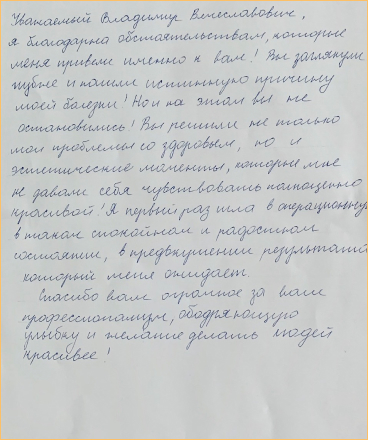 Уважаемый Владимир Вячеславович,
я благодарна обстоятельствам, которые
меня привели именно к вам! Вы заглянули
глубже и нашли истинную причину
моей болезни! Но и на этом вы не
остановились! Вы решили не только
мои проблемы со здоровьем, но и
эстетические моменты, которые мне
не давали себя чувствовать полноценно
красивой! Я первый раз шла в операционную
в таком спокойном и радостном
состоянии, в предвкушении результата
который меня ожидает.
Спасибо вам огромное за ваш
профессионализм, ободряющую
улыбку и желание делать людей
красивее!